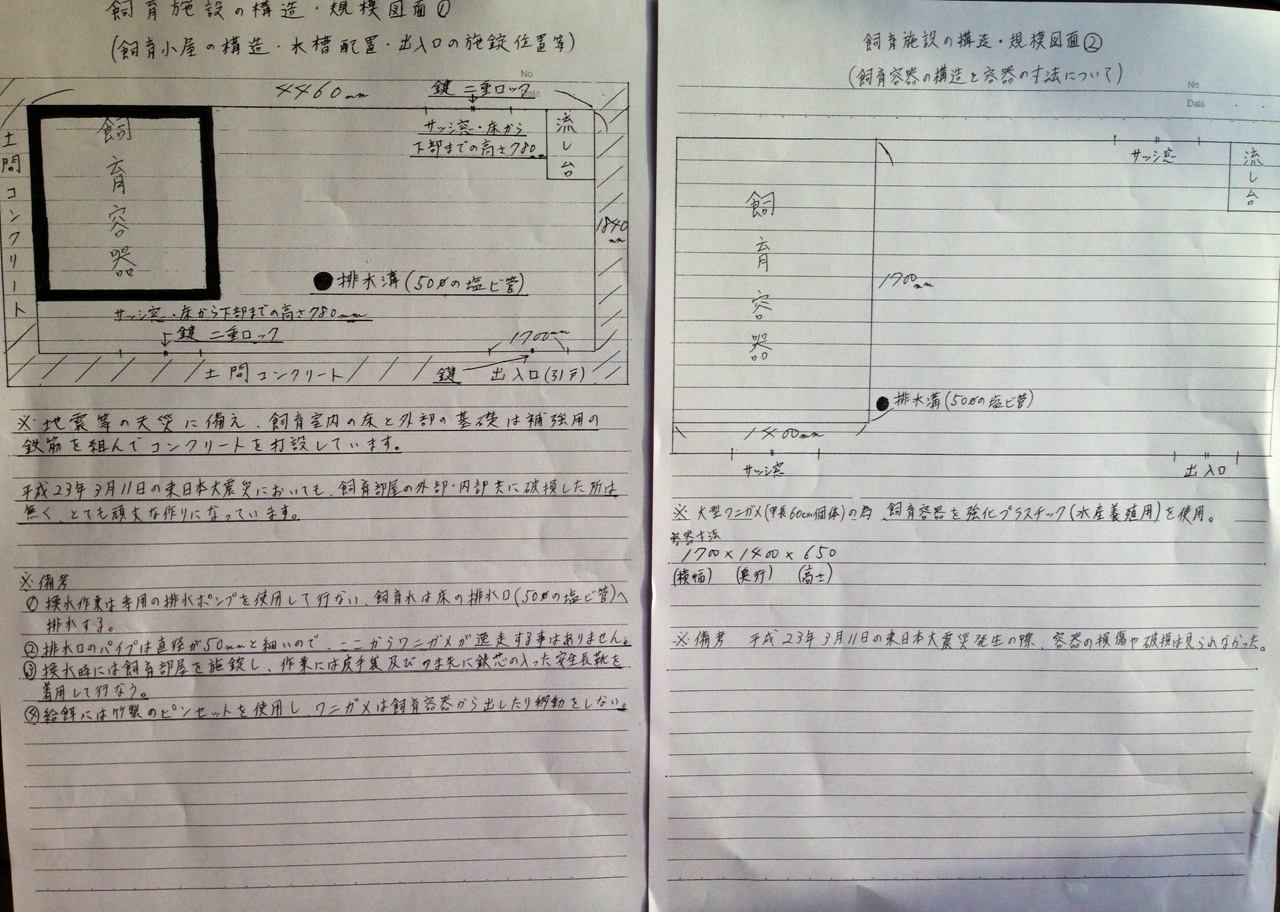 飼育施設の構造・規模図面①
(飼育小屋の構造・水槽配置・出入口の施錠位置等)
No
Date
4460mm
鍵 二重ロック
サッシ窓・床から
下部までの高さ780mm
流し台
土間コンクリート
飼育容器
1840
mm
排水溝(50φの塩ビ管)
サッシ窓・床から下部までの高さ780mm
鍵 二重ロック
1700mm
土間コンクリート
鍵
出入口(引戸)
※地震等の天災に備え、飼育室内の床と外部の基礎は補強用の
鉄筋を組んでコンクリートを打設しています。
平成23年3月11日の東日本大震災においても、飼育部屋の外部・内部共に破損した所は
無く、とても頑丈な作りになっています。
※備考
①換水作業は専用の排水ポンプを使用して行ない、飼育水は床の排水口(50φの塩ビ管)へ
排水する。
②排水口のパイプは直径が50mmと細いので、ここからワニガメが逃走する事はありません。
③換水時には飼育部屋を施錠し、作業には皮手袋及びつま先に鉄芯の入った安全長靴を
着用して行なう。
④給餌には竹製のピンセットを使用し、ワニガメは飼育容器から出したり移動をしない。
飼育施設の構造・規模図面②
(飼育容器の構造と容器の寸法について)
No.
Date
サッシ窓
流し台
飼育容器
1700mm
排水溝(50φの塩ビ管)
1400mm
サッシ窓
出入口
※大型ワニガメ(甲長60cm個体)の為、飼育容器を強化プラスチック(水産養殖用)を使用。
容器寸法
1700×1400×650
(横幅) (奥行) (高さ)
※備考 平成23年3月11日の東日本大震災発生の際、容器の損傷や破損は見られなかった。